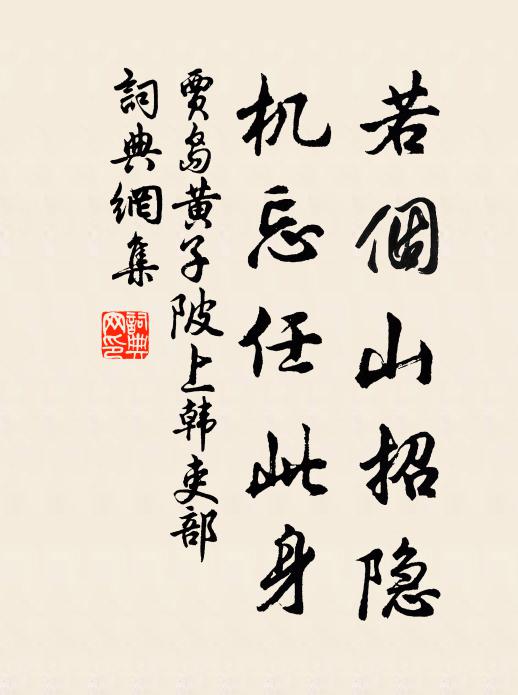 若個山招隐
机忘任此身
贾岛黄子陂上韩吏部
詞典網集
詞典
网印